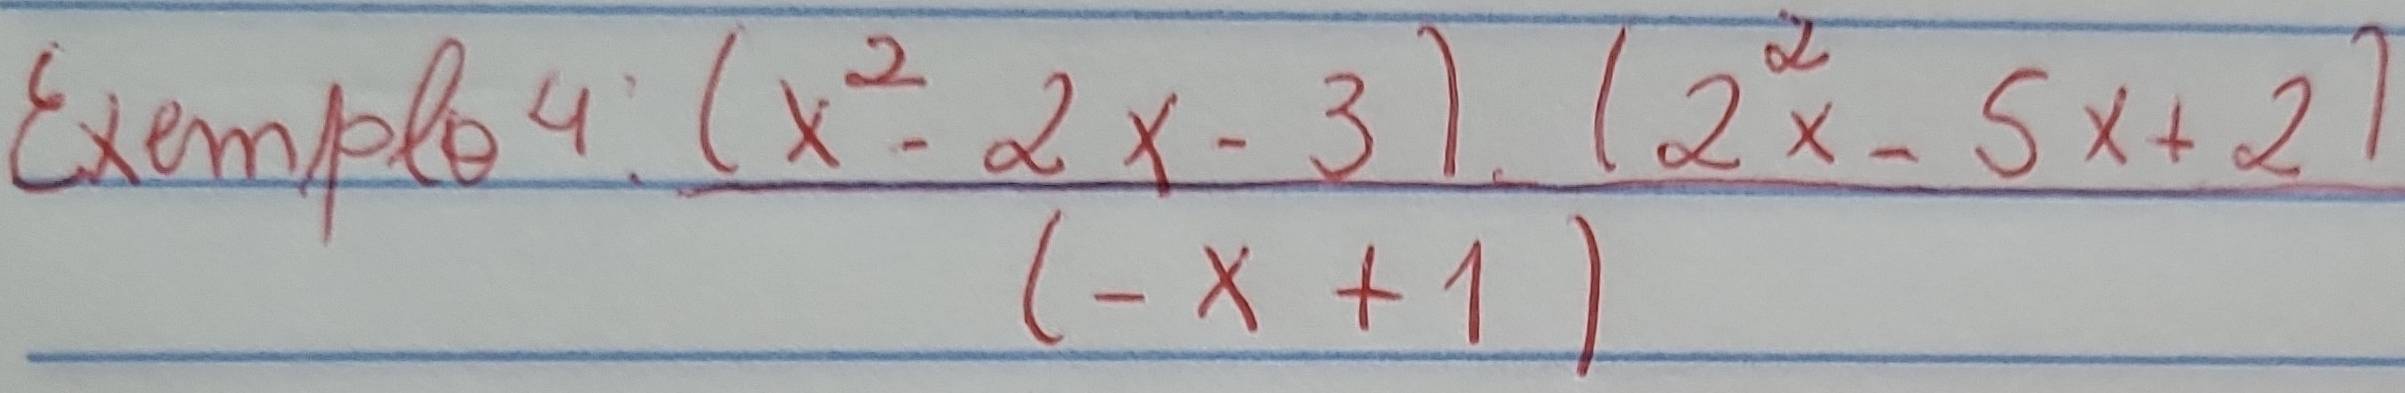 Exemplo 4: (x² - 2x - 3) . (2²x - 5x + 2)
(- x + 1)